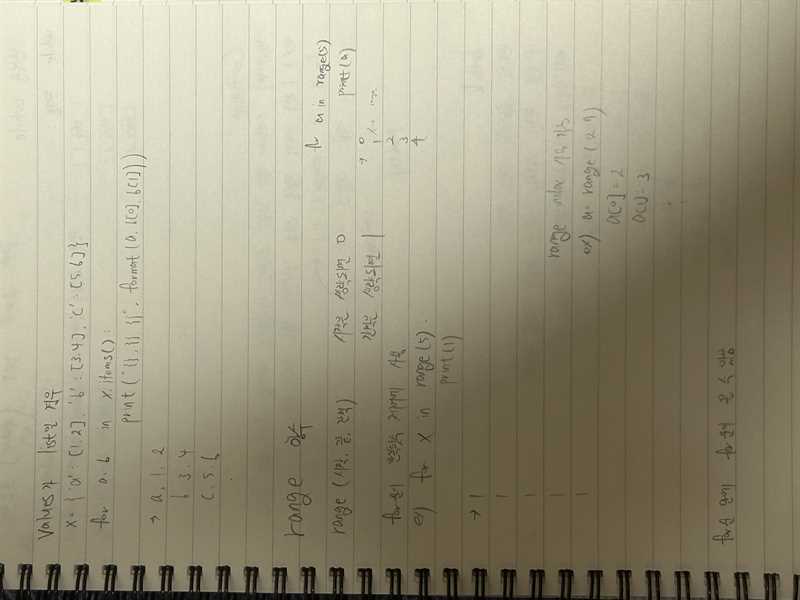 values가 list인 경우
x = { 'a' : [1,2], 'b' : [3,4], 'c' : [5,6]}
for a, b in x.items():
print("{}, {} {}". format(a, b[0], b[1]))
→ a, 1, 2
b 3, 4
c, 5, 6
range 함수
range (시작, 끝, 간격) 시작은 생략되면 0
간격은 생략되면 1
for문의 반복횟수 제어에 사용
ex) for x in range(5):
print(1)
→ 1
1
1
1
1
for a in range(5)
print(a)
→ 0
1
2
3
4
range index 가능
ex) a = range(2
a[0] = 2
a[1] = 3
for문 안에 for문이 올 수 있음